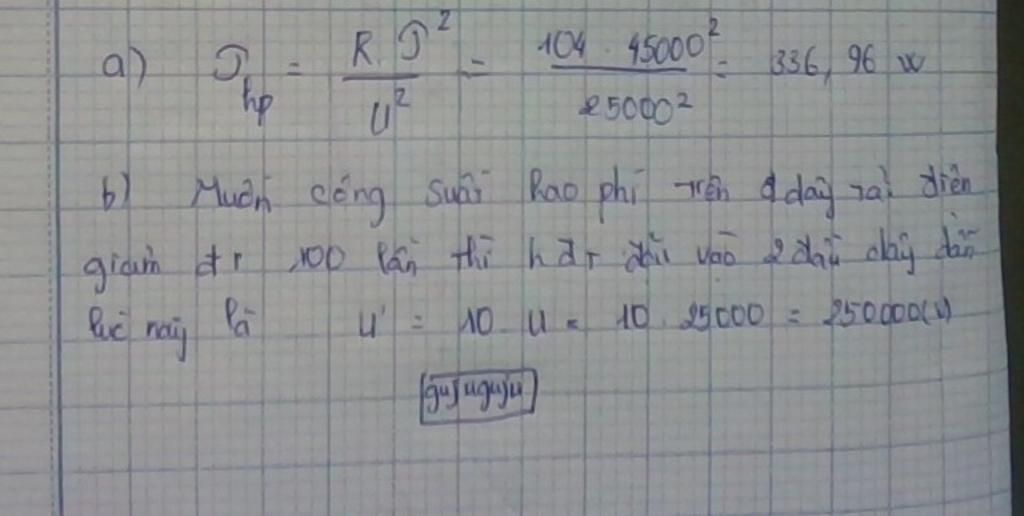 a) P hp = R.P² / U² = 104 . 45000² / 25000² = 336,96 W
b) Muốn công suất hao phí trên d dây tải điện
giảm đi 100 lần thì hđt đầu vào 2 đầu dây dẫn
lúc này là U' = 10 . U = 10 . 25000 = 250000(V)
gujuguju